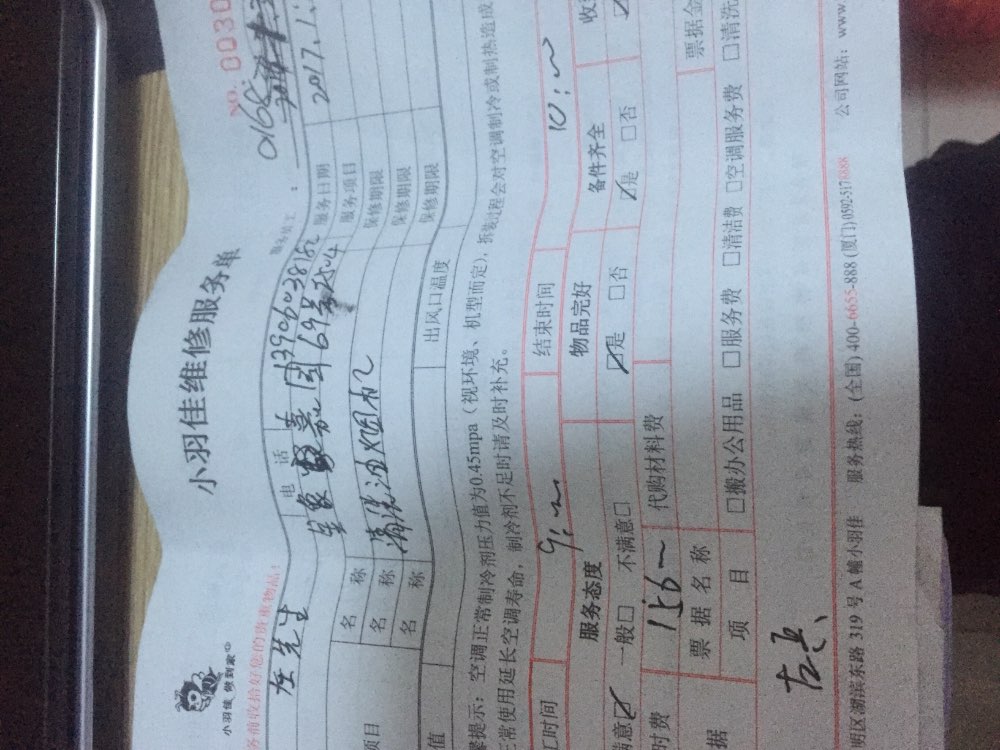 小羽佳 做到家
NO. 0030
小羽佳维修服务单
务前收拾好您的贵重物品!
服务员工: 0168
左先生 电话 服务日期 2017.1.
69号 服务项目
名称 清洗 保修期限
名称 保修期限
名称 保修期限
项目
值 出风口温度
馨提示:空调正常制冷剂压力值为0.45mpa(视环境、机型而定),拆装过程会对空调制冷或制热造成
正常使用延长空调寿命,制冷剂不足时请及时补充。
工时间 9: 结束时间 10:
服务态度 物品完好 备件齐全 收
满意☑ 一般□ 不满意□ ☑是 □否 ☑是 □否
时费 150 代购材料费
票据名称 票据金
据 项目 □搬办公用品 □服务费 □清洁费 □空调服务费 □清洗
明区湖滨东路 319 号 A 幢小羽佳 服务热线:(全国) 400-6655-888 (厦门) 0592-5178888 公司网站:www.